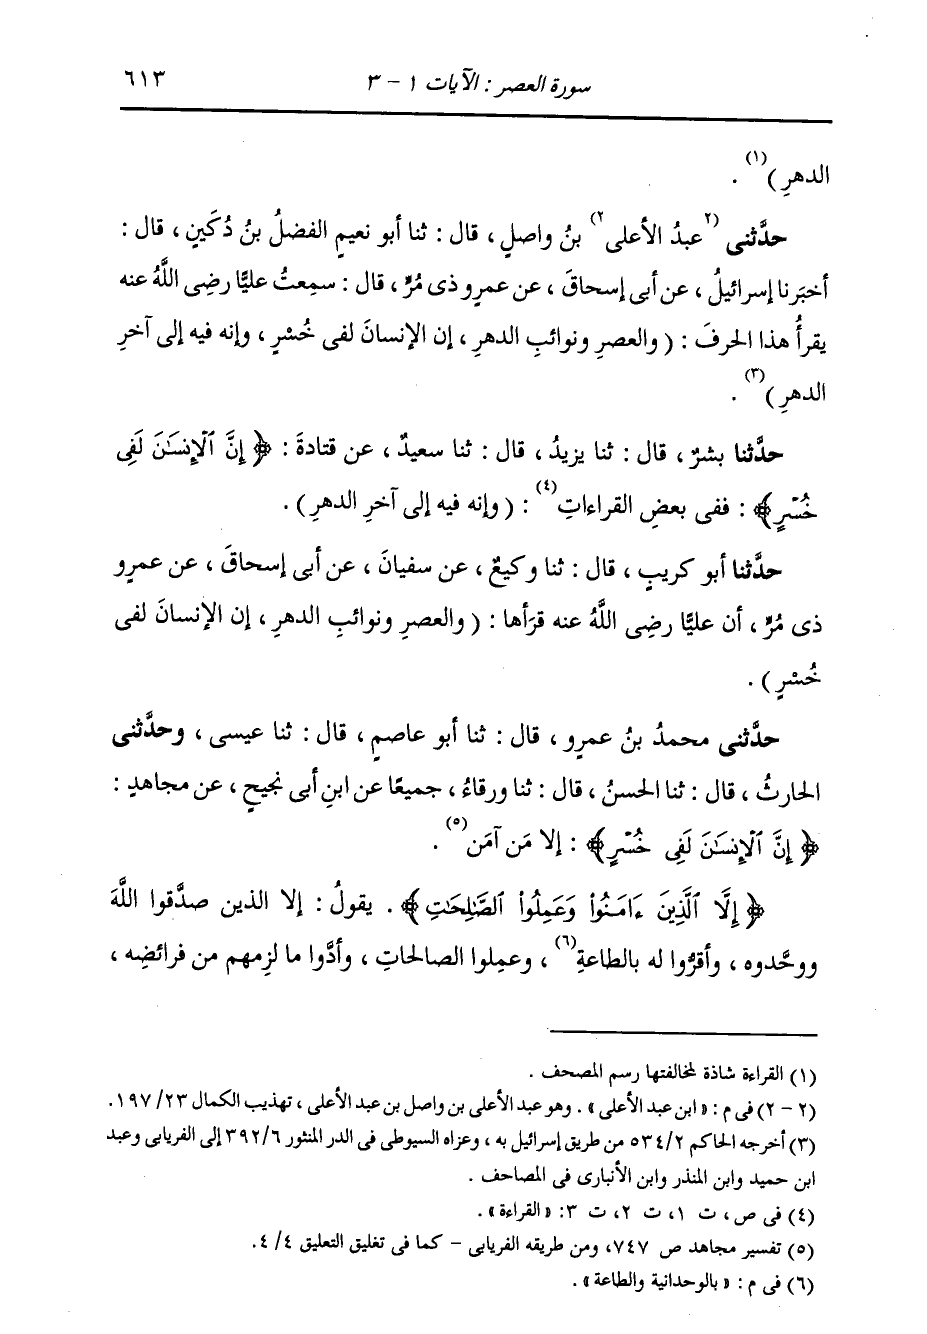 سورة العصر : الآيات ١ - ٣ ٦١٣
الدهرِ )(١) .
حدَّثنى (٢عبدُ الأعلى٢) بنُ واصلٍ ، قال : ثنا أبو نعيمٍ الفضلُ بنُ دُكَينٍ ، قال :
أخبَرنا إسرائيلُ ، عن أبى إسحاقَ ، عن عمرٍو ذى مُرٍّ ، قال : سمِعتُ عليًّا رضِى اللَّهُ عنه
يقرأُ هذا الحرفَ : ( والعصرِ ونوائبِ الدهرِ ، إن الإنسانَ لفى خُسْرٍ ، وإنه فيه إلى آخرِ
الدهرِ )(٣) .
حدَّثنا بشرٌ ، قال : ثنا يزيدُ ، قال : ثنا سعيدٌ ، عن قتادةَ : ﴿ إِنَّ ٱلْإِنسَٰنَ لَفِى
خُسْرٍ ﴾ : ففى بعضِ القراءاتِ(٤) : ( وإنه فيه إلى آخرِ الدهرِ ) .
حدَّثنا أبو كريبٍ ، قال : ثنا وكيعٌ ، عن سفيانَ ، عن أبى إسحاقَ ، عن عمرٍو
ذى مُرٍّ ، أن عليًّا رضِى اللَّهُ عنه قرَأها : ( والعصرِ ونوائبِ الدهرِ ، إن الإنسانَ لفى
خُسْرٍ ) .
حدَّثنى محمدُ بنُ عمرٍو ، قال : ثنا أبو عاصمٍ ، قال : ثنا عيسى ، وحدَّثنى
الحارثُ ، قال : ثنا الحسنُ ، قال : ثنا ورقاءُ ، جميعًا عن ابنِ أبى نجيحٍ ، عن مجاهدٍ :
﴿ إِنَّ ٱلْإِنسَٰنَ لَفِى خُسْرٍ ﴾ : إلا مَن آمَن(٥) .
﴿ إِلَّا ٱلَّذِينَ ءَامَنُوا۟ وَعَمِلُوا۟ ٱلصَّٰلِحَٰتِ ﴾ . يقولُ : إلا الذين صدَّقوا اللَّهَ
ووحَّدوه ، وأقرُّوا له بالطاعةِ(٦) ، وعمِلوا الصالحاتِ ، وأدَّوا ما لزِمهم من فرائضِه ،
(١) القراءة شاذة لمخالفتها رسم المصحف .
(٢ - ٢) فى م : « ابن عبد الأعلى » . وهو عبد الأعلى بن واصل بن عبد الأعلى ، تهذيب الكمال ٢٣/ ١٩٧.
(٣) أخرجه الحاكم ٥٣٤/٢ من طريق إسرائيل به ، وعزاه السيوطى فى الدر المنثور ٣٩٢/٦ إلى الفريابى وعبد
ابن حميد وابن المنذر وابن الأنبارى فى المصاحف .
(٤) فى ص ، ت ١، ت ٢، ت ٣: « القراءة » .
(٥) تفسير مجاهد ص ٧٤٧، ومن طريقه الفريابى - كما فى تغليق التعليق ٤/ ٤.
(٦) فى م : « بالوحدانية والطاعة » .